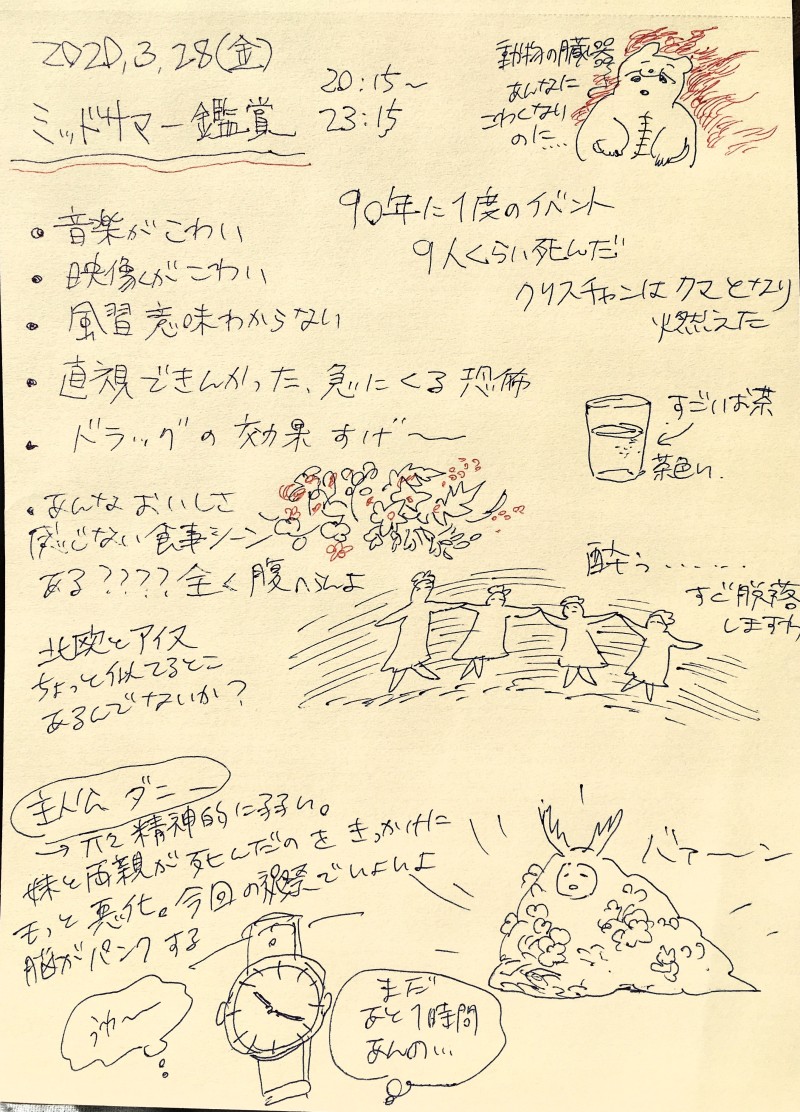 2020,3,28(金)
ミッドサマー鑑賞
20:15〜
23:15
動物の臓器
あんなに
こわくなり
のに....
・音楽がこわい
・映像がこわい
・風習意味わからない
・直視できんかった、急にくる恐怖
・ドラッグの効果すげ〜〜
90年に1度のイベント
9人くらい死んだ
クリスチャンはクマとなり
燃えた
すごいお茶
茶色い.
・あんなおいしさ
感じない食事シーン
ある????全く腹へらんよ
酔う......
すご脱落
しますわ
北欧とアイヌ
ちょっと似てるとこ
あるんでないか?
主人公 ダニー
→元々精神的に弱い。
妹と両親が死んだのをきっかけに
もっと悪化。今回の祝祭でいよいよ
脳がパンクする
バァーーン
うわ〜
まだ
あと1時間
あんの...